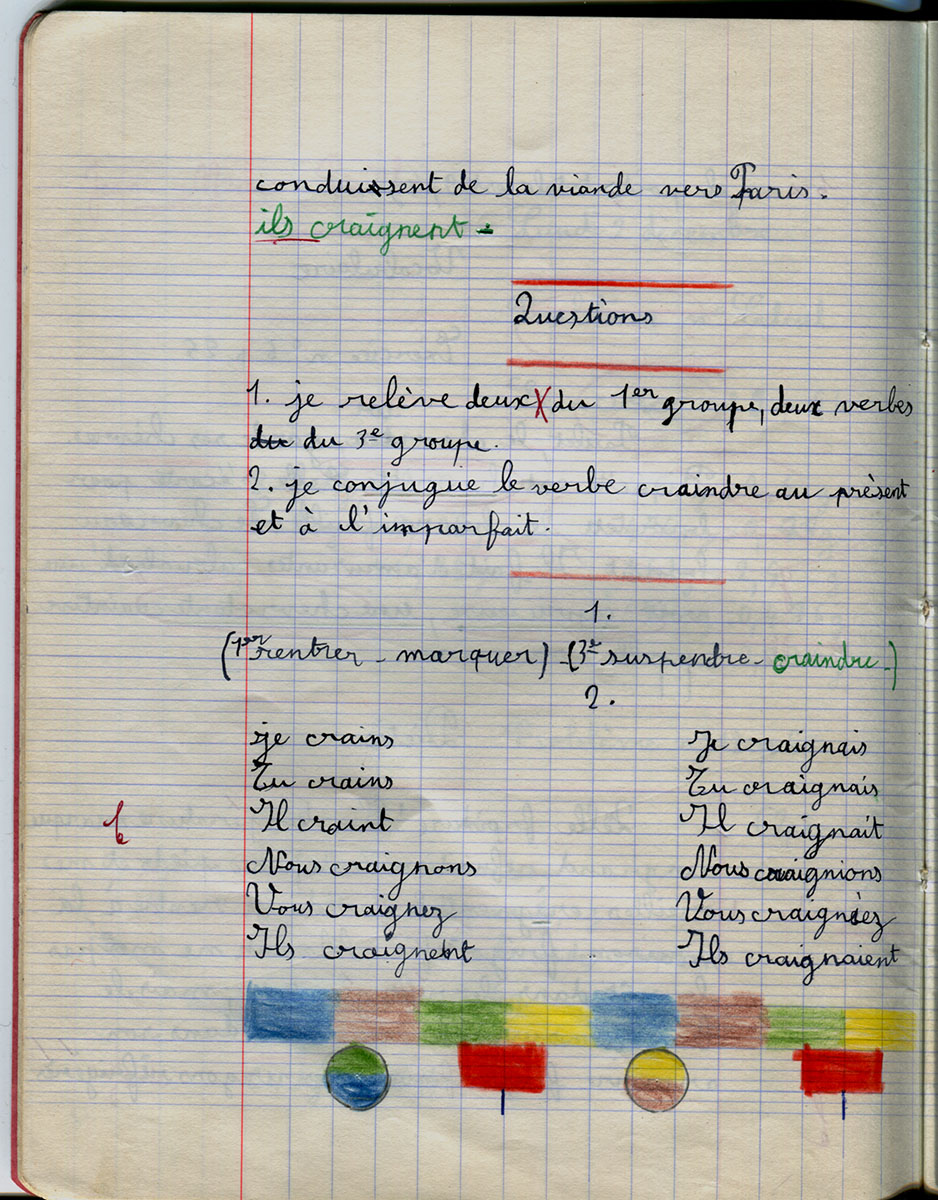 conduissent de la viande vers Paris.
ils craignent.
Questions
1. je relève deux du 1er groupe, deux verbes
du du 3e groupe.
2. je conjugue le verbe craindre au présent
et à l'imparfait.
1.
(1er rentrer - marquer) - (3e suspendre - craindre -)
2.
je crains Je craignais
Tu crains Tu craignais
Il craint Il craignait
Nous craignons Nous craignions
Vous craignez Vous craigniez
Ils craignent Ils craignaient